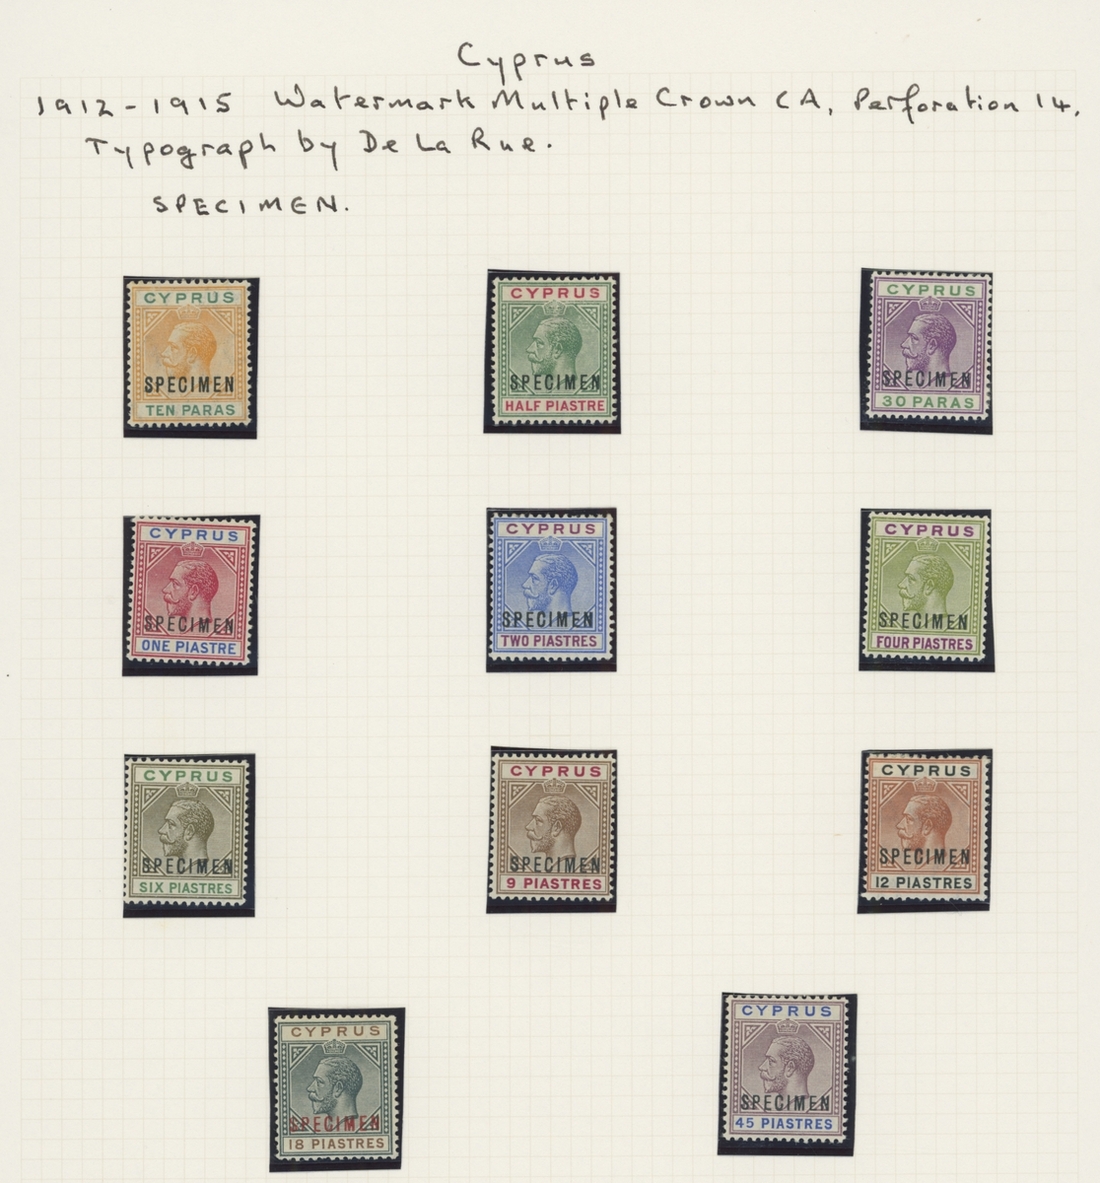 Cyprus
1912-1915 Watermark Multiple Crown CA, Perforation 14,
Typograph by De La Rue.
SPECIMEN.
CYPRUS
SPECIMEN
TEN PARAS
CYPRUS
SPECIMEN
HALF PIASTRE
CYPRUS
SPECIMEN
30 PARAS
CYPRUS
SPECIMEN
ONE PIASTRE
CYPRUS
SPECIMEN
TWO PIASTRES
CYPRUS
SPECIMEN
FOUR PIASTRES
CYPRUS
SPECIMEN
SIX PIASTRES
CYPRUS
SPECIMEN
9 PIASTRES
CYPRUS
SPECIMEN
12 PIASTRES
CYPRUS
SPECIMEN
18 PIASTRES
CYPRUS
SPECIMEN
45 PIASTRES